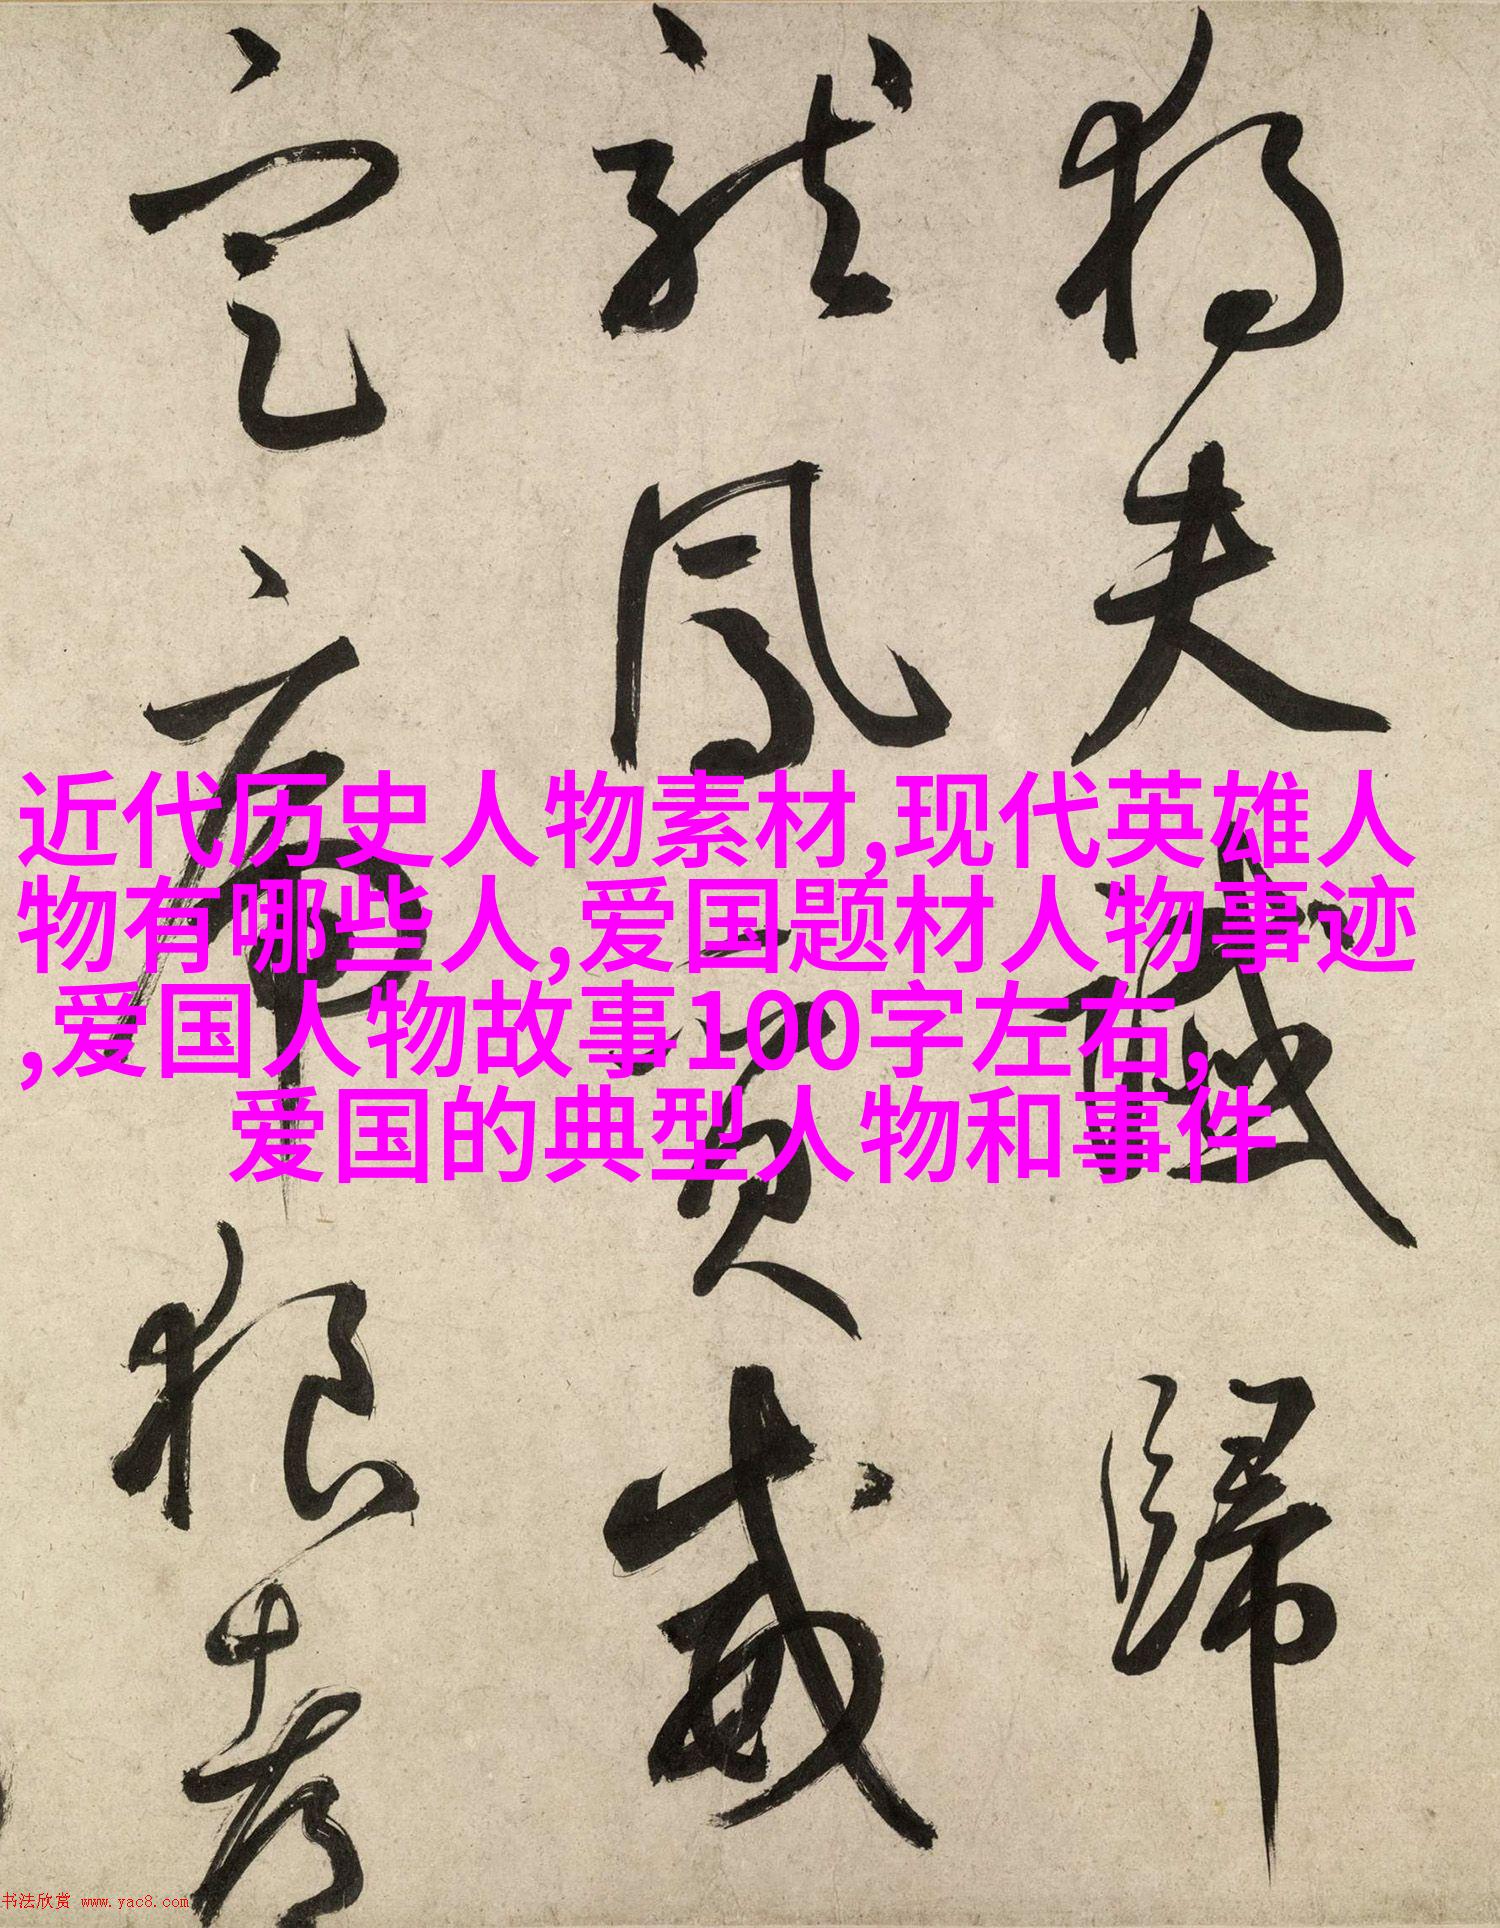 獨夫讖歸
龍鳳質威
定虎狼都
近代历史人物素材,现代英雄人
物有哪些人,爱国题材人物事迹
,爱国人物故事100字左右,
爱国的典型人物和事件
书法欣赏 www.yac8.com